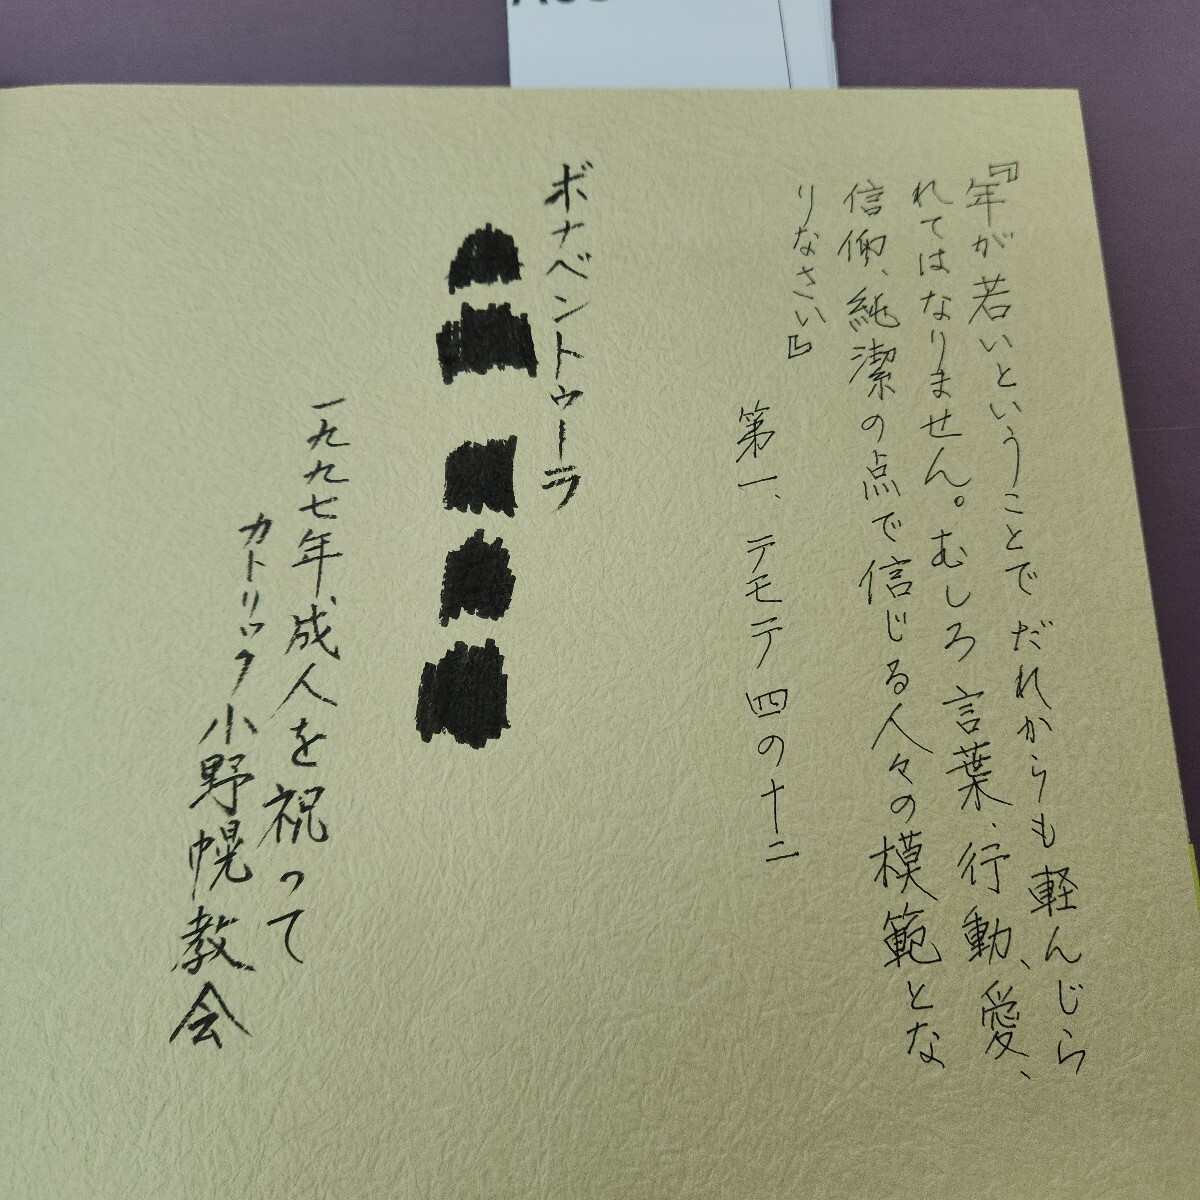 『年が若いということでだれからも軽んじら
れてはなりません。むしろ言葉、行動、愛、
信仰、純潔の点で信じる人々の模範とな
りなさい』
第一、テモテ四の十二
ボナベントゥーラ
一九九七年、成人を祝って
カトリック小野幌教会